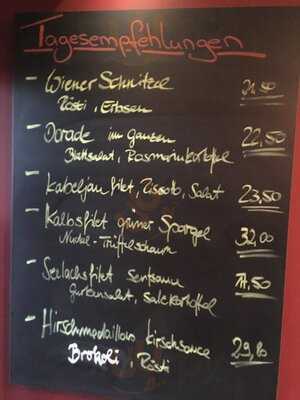 Tagesempfehlungen
- Wiener Schnitzel 21,50
Rösti, Erbsen
- Dorade im Ganzen 22,50
Blattsalat, Rosmarinkartoffel
- Kabeljaufilet, Rissotto, Salat 23,50
- Kalbsfilet grüner Spargel 32,00
Nudel-Trüffelschaum
- Seelachsfilet Senfsauce
Gurkensalat, Salzkartoffel
- Hirschmedaillons Kirschsauce
Brokoli, Rösti